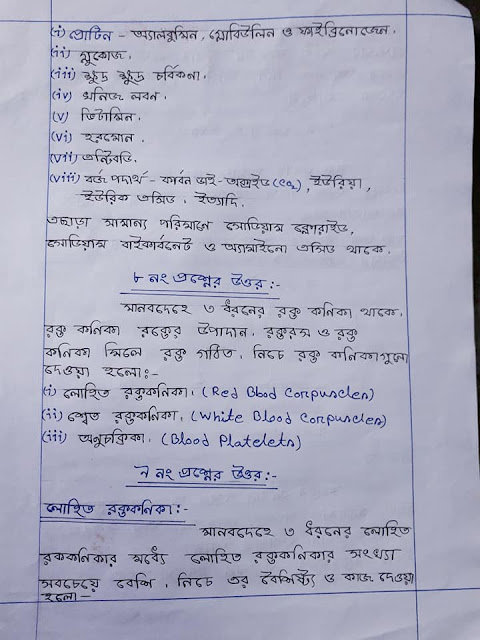 (i) প্রোটিন - অ্যালবুমিন, গ্লোবিউলিন ও ফাইব্রিনোজেন.
(ii) গ্লুকোজ.
(iii) ক্ষুদ্র ক্ষুদ্র চর্বিকনা.
(iv) খনিজ লবন.
(v) ভিটামিন.
(vi) হরমোন.
(vii) এন্টিবডি.
(viii) বর্জ পদার্থ - কার্বন ডাই-অক্সাইড (CO₂), ইউরিয়া,
ইউরিক এসিড, ইত্যাদি.
এছাড়া সামান্য পরিমানে সোডিয়াম ক্লোরাইড,
সোডিয়াম বাইকার্বনেট ও অ্যামাইনো এসিড থাকে.
৮ নং প্রশ্নের উত্তর:-
মানবদেহে ৩ ধরনের রক্ত কনিকা থাকে.
রক্ত কনিকা রক্তের উপাদান. রক্তরস ও রক্ত
কনিকা মিলে রক্ত গঠিত. নিচে রক্ত কনিকাগুলো
দেওয়া হলো:-
(i) লোহিত রক্তকনিকা. (Red Blood Corpuscles)
(ii) শ্বেত রক্তকনিকা. (White Blood Corpuscles)
(iii) অনুচক্রিকা. (Blood Platelets)
৯ নং প্রশ্নের উত্তর:-
লোহিত রক্তকনিকা:-
মানবদেহে ৩ ধরনের লোহিত
রক্তকনিকার মধ্যে লোহিত রক্তকনিকার সংখ্যা
সবচেয়ে বেশি. নিচে এর বৈশিষ্ট্য ও কাজ দেওয়া
হলো—